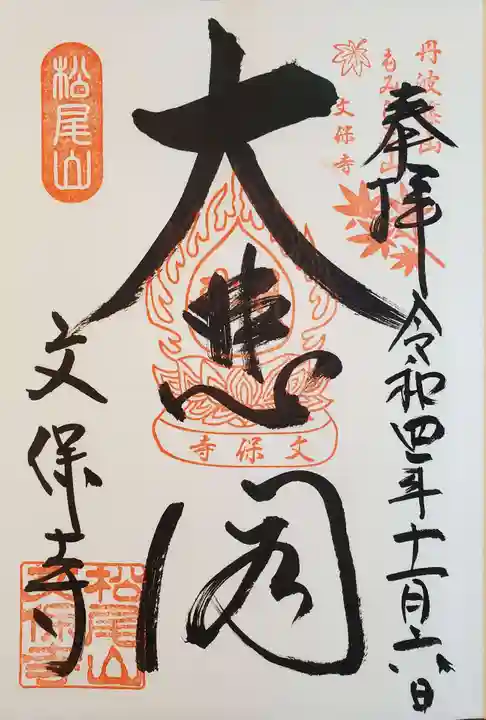 奉拝
令和四年十一月六日
丹波篠山
もみじ山
文保寺
大悲閣
文保寺
松尾山
文保寺
松尾山
文保寺